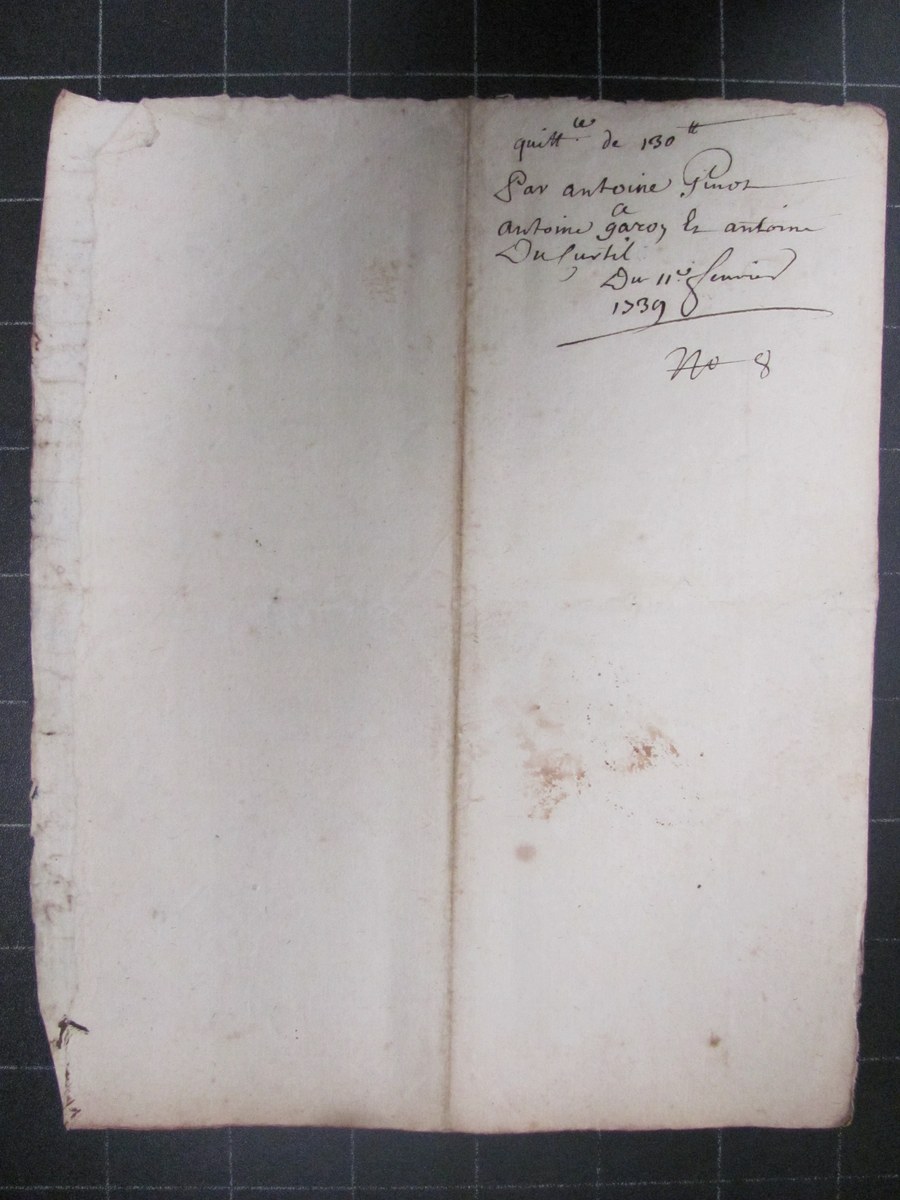 quitt.ce de 130 tt
Par antoine Pinot
a
antoine garo, Et antoine
Dusurtil
Du 11e feurier
1739
No 8